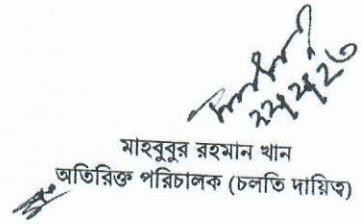 মাহবুবুর রহমান খান
অতিরিক্ত পরিচালক (চলতি দায়িত্ব)